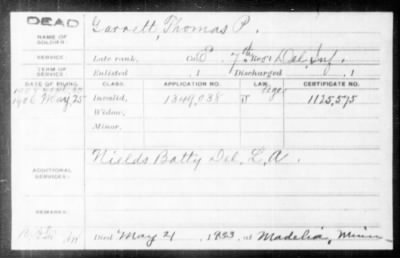 DEAD
NAME OF SOLDIER:
Garrett, Thomas P.
SERVICE:
Late rank, Co. E, 7th Reg't Del. Inf.
TERM OF SERVICE:
Enlisted , 1 Discharged , 1
DATE OF FILING. CLASS. APPLICATION NO. LAW. CERTIFICATE NO.
1906 May 25 Invalid, 1349,038 1125,575
Widow,
Minor,
ADDITIONAL SERVICES:
Nields Batty Del. L.A.
REMARKS:
Died May 21, 1923, at Madelia, Minn